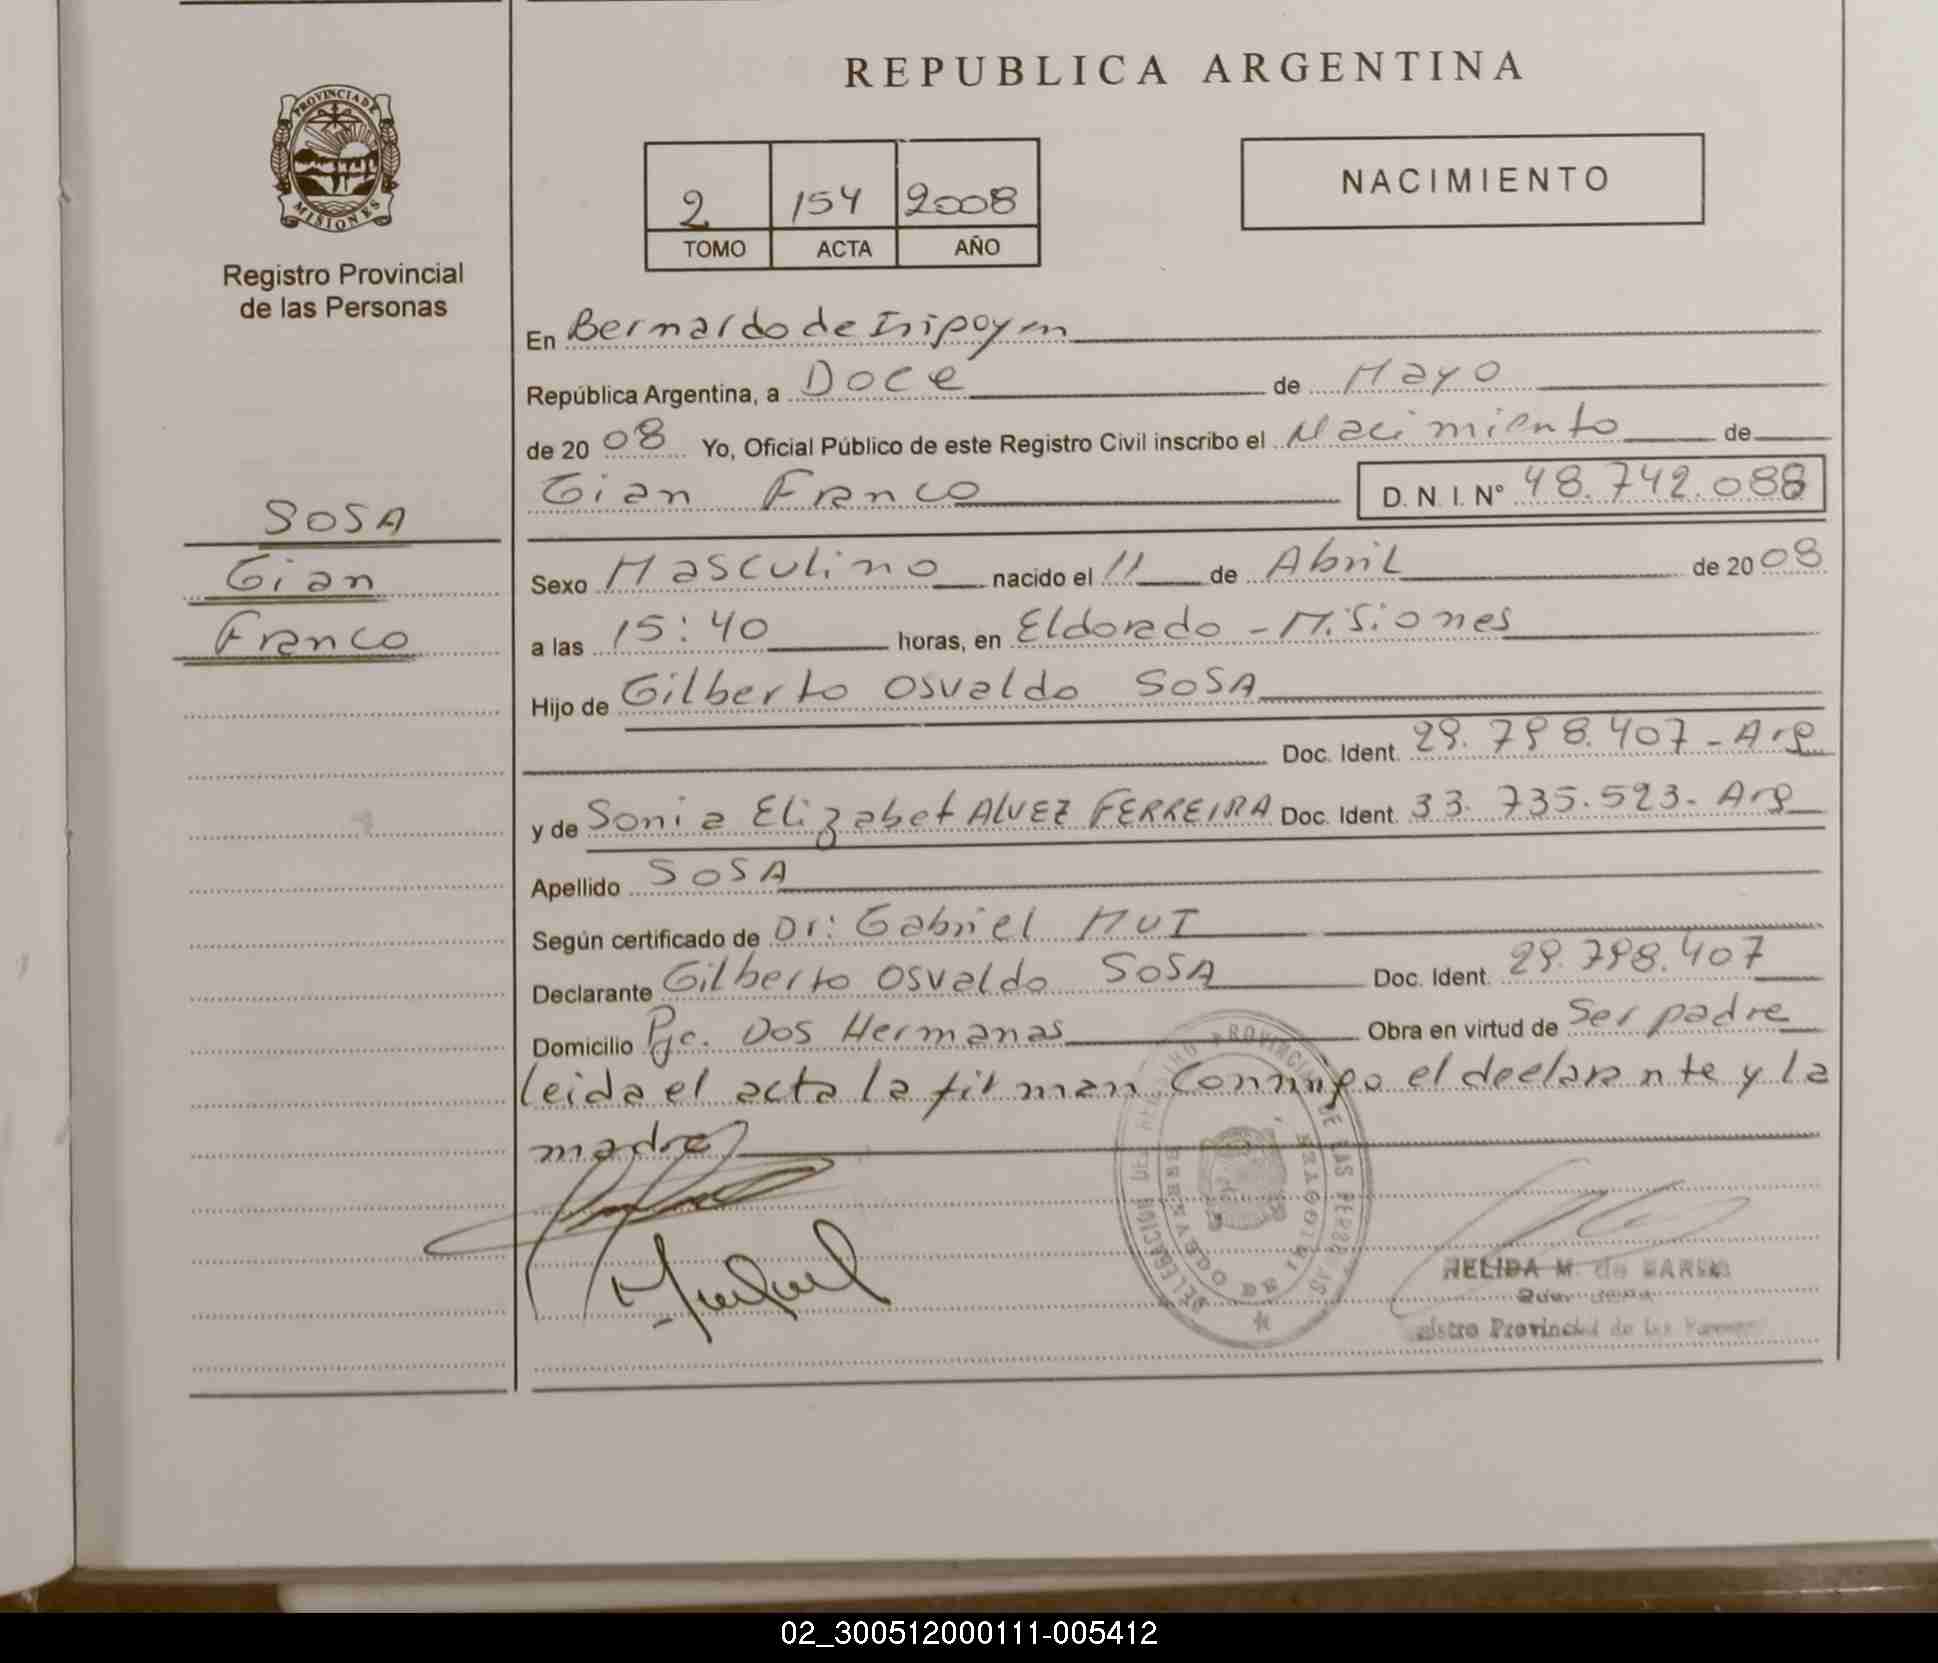 REPUBLICA ARGENTINA
PROVINCIA DE
MISIONES
Registro Provincial
de las Personas
2 154 2008
TOMO ACTA AÑO
NACIMIENTO
En Bernardo de Irigoyen
República Argentina, a Doce de Mayo
de 2008 Yo, Oficial Público de este Registro Civil inscribo el Nacimiento de
Gian Franco D. N. I. N° 48.742.088
SOSA
Gian
Franco
Sexo Masculino nacido el 11 de Abril de 2008
a las 15:40 horas, en Eldorado - Misiones
Hijo de Gilberto Osvaldo SOSA
Doc. Ident. 29.798.407 - Arg
y de Sonia Elizabet ALVEZ FERREIRA Doc. Ident. 33.735.523 - Arg
Apellido SOSA
Según certificado de Dr: Gabriel MUT
Declarante Gilberto Osvaldo SOSA Doc. Ident. 29.798.407
Domicilio Pje. Dos Hermanas Obra en virtud de Ser padre
leida el acta la firman conmigo el declarante y la
madre
DELEGACION DEL REGISTRO PROVINCIAL DE LAS PERSONAS
BERNARDO DE IRIGOYEN
NELIDA M. de
Registro Provincial de las Personas
02_300512000111-005412